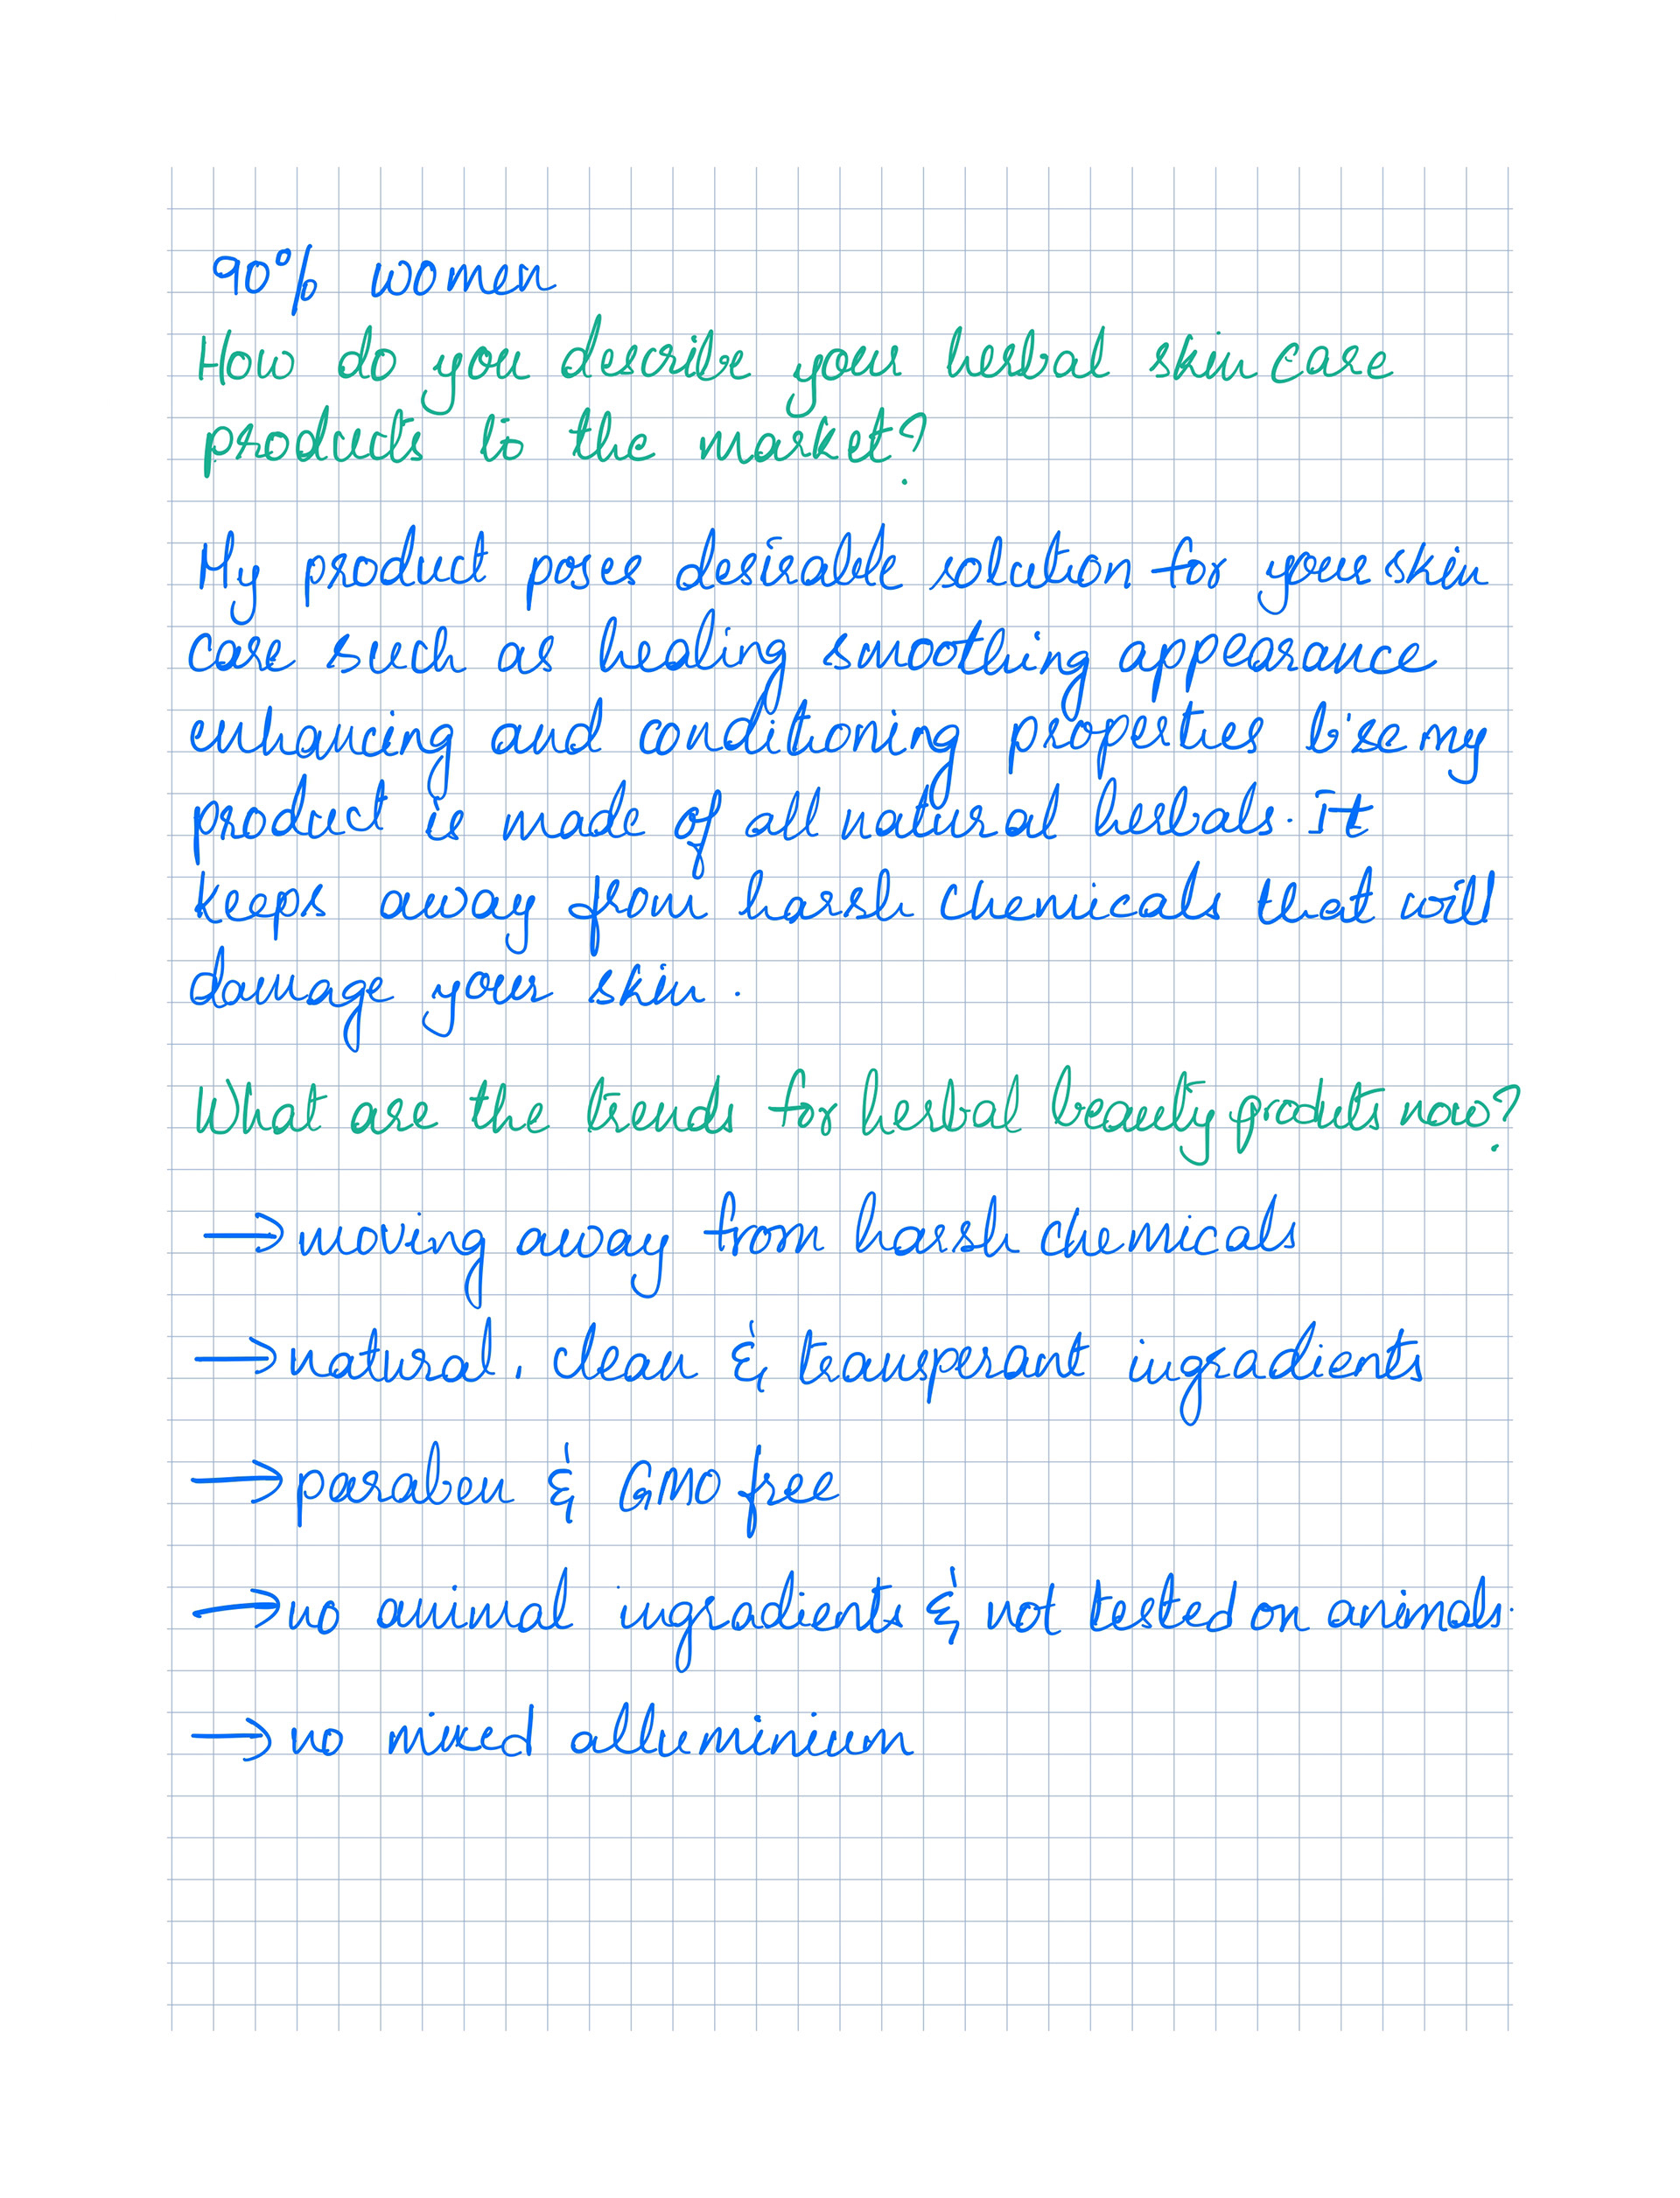 90% women
How do you describe your herbal skin care
products to the market?
My product poses desirable solution for your skin
care such as healing smoothing appearance
enhancing and conditioning properties b'se my
product is made of all natural herbals. It
keeps away from harsh chemicals that will
damage your skin.
What are the trends for herbal beauty produts now?
→ moving away from harsh chemicals
→ natural, clean & transperant ingradients
→ paraben & GMO free
→ no animal ingradients & not tested on animals.
→ no mixed alluminium